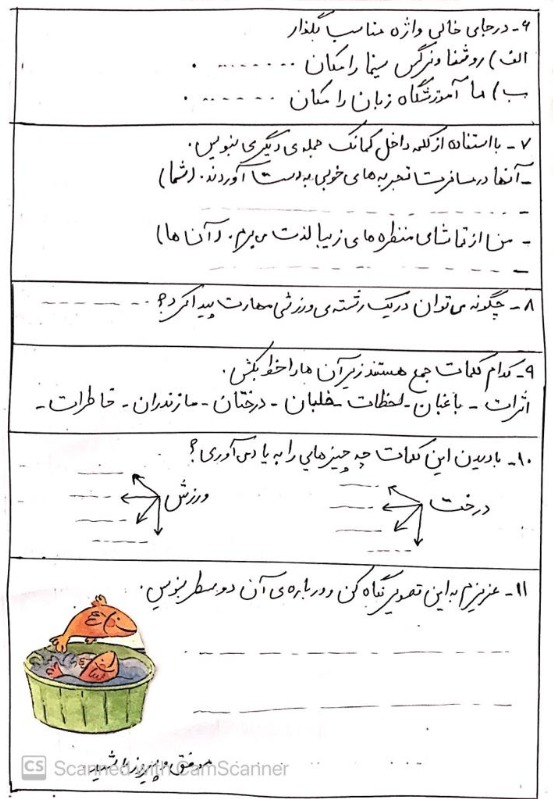 ۶- در جای خالی واژه مناسب بگذار
الف) روشنا و نرگس سینما را مکان ........ .
ب) ما آموزشگاه زبان را مکان ........ .
۷- با استفاده از کلمه داخل کمانک جمله ی دیگری بنویس.
- آنها در مسافرت تجربه های خوبی به دست آوردند. (شما)
- من از تماشای منظره های زیبا لذت می برم. (آن ها)
۸- چگونه می توان در یک رشته ی ورزشی مهارت پیدا کرد؟
۹- کدام کلمات جمع هستند زیر آن ها را خط بکش.
اثرات - باغبان - لحظات - خلبان - درختان - مازندران - خاطرات -
۱۰- با دیدن این کلمات چه چیزهایی را به یاد می آوری؟
درخت ورزش
۱۱- عزیزم به این تصویر نگاه کن و درباره ی آن دو سطر بنویس.
موفق و پیروز باشید
CS Scanned with CamScanner